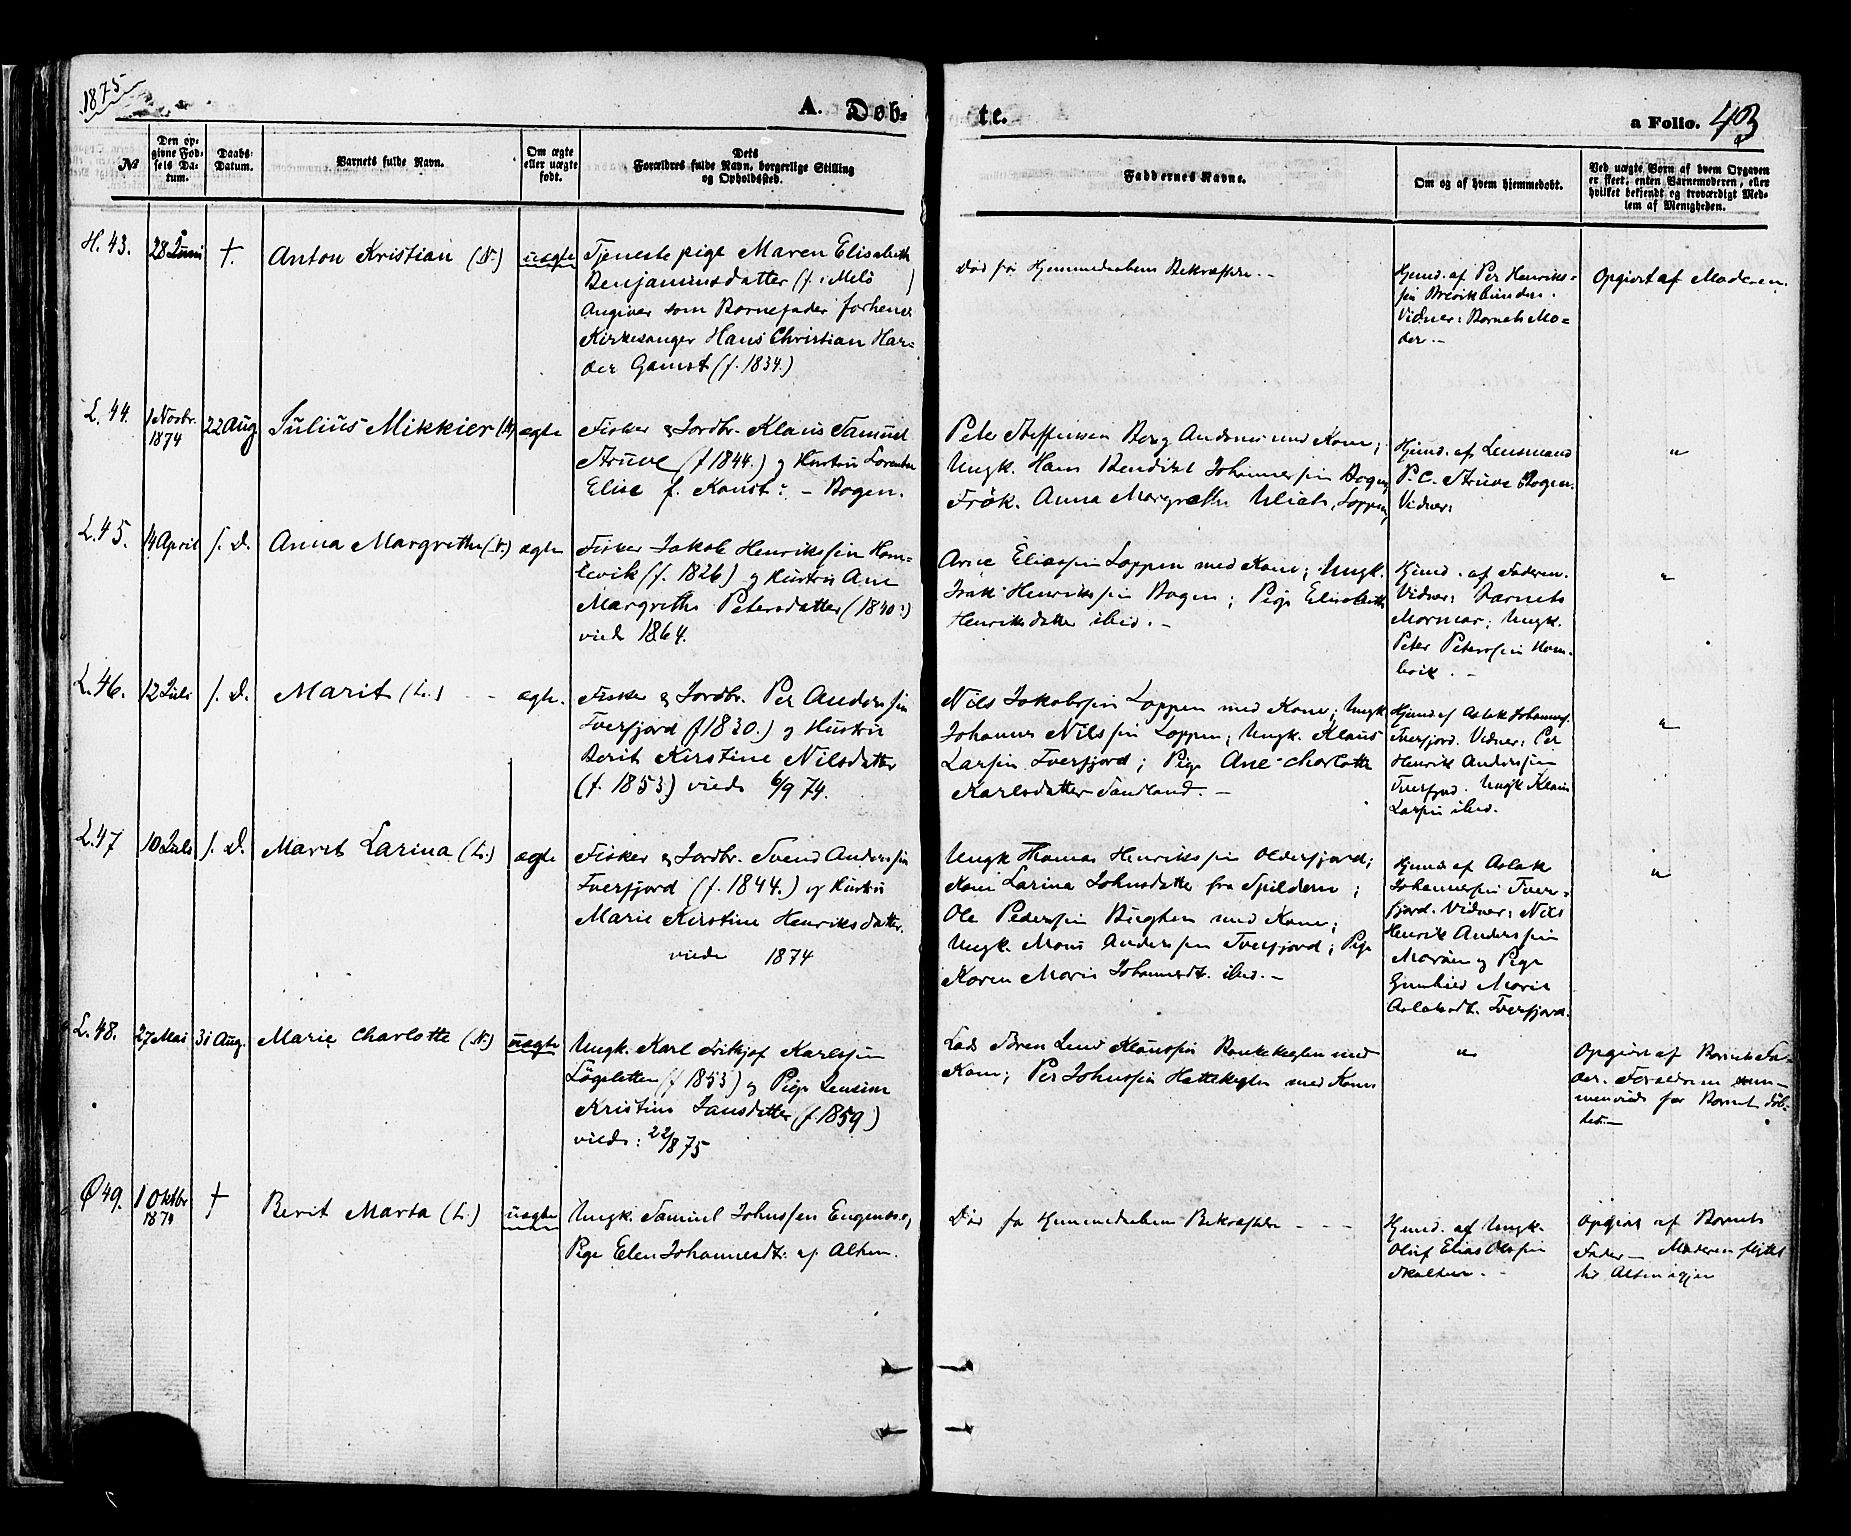 1875
A. Døb-
te.
a Folio. 43
№
Den op-
givne Fød-
sels Da-
tum.
Daabs-
Datum.
Barnets fulde Navn.
Om ægte
eller uægte
født.
Dets
Forældres fulde Navn, borgerlige Stilling
og Opholdssted.
Faddernes Navne.
Om og af hvem hjemmedøbt.
Ved uægte Børn af hvem Opgaven
er skeet, enten Barnemoderen, eller
hvilket bekjendt og troværdigt Med-
lem af Menigheden.
H. 43.
28 Juni
†.
Anton Kristian (N.)
uægte
Tjenestepige Maren Elisabeth
Benjaminsdatter (f. i Melö )
Angiver som Barnefader forhenv
Kirkesanger Hans Christian Har-
der Gamst (f. 1834.)
Död før Hjemmedaabens Bekræftelse. -
Hjmd. af Per Henriks-
sen
Vidner: Barnets Mo-
der. -
Opgivet af Moderen.
L. 44.
1 Novbr.
1874
22 Aug
Julius Mikkier (N)
ægte
Fisker & Jordbr. Klaus Samuel
Struve (f 1844.) og Hustru
Elise f. Konst: - Bogen.
Peter Steffensen Berg Andsnes med Kone;
Ungk. Hans Bendikt Johannessen Bogen
Frök. Anna Margrethe Ulich, Loppen
Hjmd. af Lensmand
P. C. Struve Bogen.
Vidner:
"
L. 45.
14 April
s. D.
Anna Margrethe (N.)
ægte
Fisker Jakob Henrikssen Hom-
levik (f. 1826) og Hustru Ane
Margrethe Petersdatter (1840:)
vied 1864.
Arne Eliassen Loppen med Kone; Ungk.
Isak Henrikssen Bogen; Pige Elisabeth
Henriksdatter ibid. -
Hjmd. af Faderen.
Vidner: Barnets
Mormor; Ungk.
Peter Peterssen Hom-
levik. -
"
L. 46.
12 Juli
s. D.
Marit (L.) - -
ægte.
Fisker & Jordbr. Per Anderssen
Tverfjord (f 1830.) og Hustru
Berit Kirstine Nilsdatter
(f. 1853.) viede 6/9 74.
Nils Jakobssen Loppen med Kone; Ungk
Johannes Nilssen Loppen; Ungk. Klaus
Larsen Tverfjord; Pige Ane Charlotte
Karlsdatter Sandland. -
Hjmd af Aslak Johannes.
Tverfjord. Vidner: Per
Henrik Anderssen
Tverfjord. Ungk Klaus
Larsen ibid.
"
L. 47
10 Juli
s. D.
Marit Larina (L.)
ægte
Fisker & Jordbr. Svend Anderssen
Tverfjord (f. 1844.) og Hustru
Marie Kirstine Henriksdatter.
viede 1874
Ungk Thomas Henrikssen Oldersfjord;
Kone Larina Johnsdatter fra Spildern;
Ole Pederssen med Kone;
Ungk. Mons Anderssen Tverfjord; Pige
Karen Marie Johannesdt. ibid. -
Hjmd af Aslak
Johannessen Tver-
fjord. Vidner: Nils
Henrik Anderssen
og Pige
Gunhild Marie
Aslaksdt. Tverfjord.
"
L. 48.
27 Mai
31 Aug.
Marie Charlotte (N.)
uægte
Ungk. Karl Fritjof Karlssen
Lögsletten (f 1853) og Pige
Kristine Jansdatter (f. 1859)
viede: 22/8 75
Lods Sören Lund Klaussen med
Kone; Per Johnssen med Kone
"
Opgivet af Barnets Fa-
der. Forældrene sam-
menviede før Barnet döb-
tes. -
Ø 49.
1 Oktbr
1874
†
Berit Marta (L.)
uægte
Ungk. Samuel Johnssen
Pige Elen Johannesdt: af Alten.
Död før Hjemmedaabens Bekræftelse - - -
Hjmd. af Ungk.
Oluf Elias Olssen
Opgivet af Barnets
Fader - Moderen flyttet
til Alten igjen